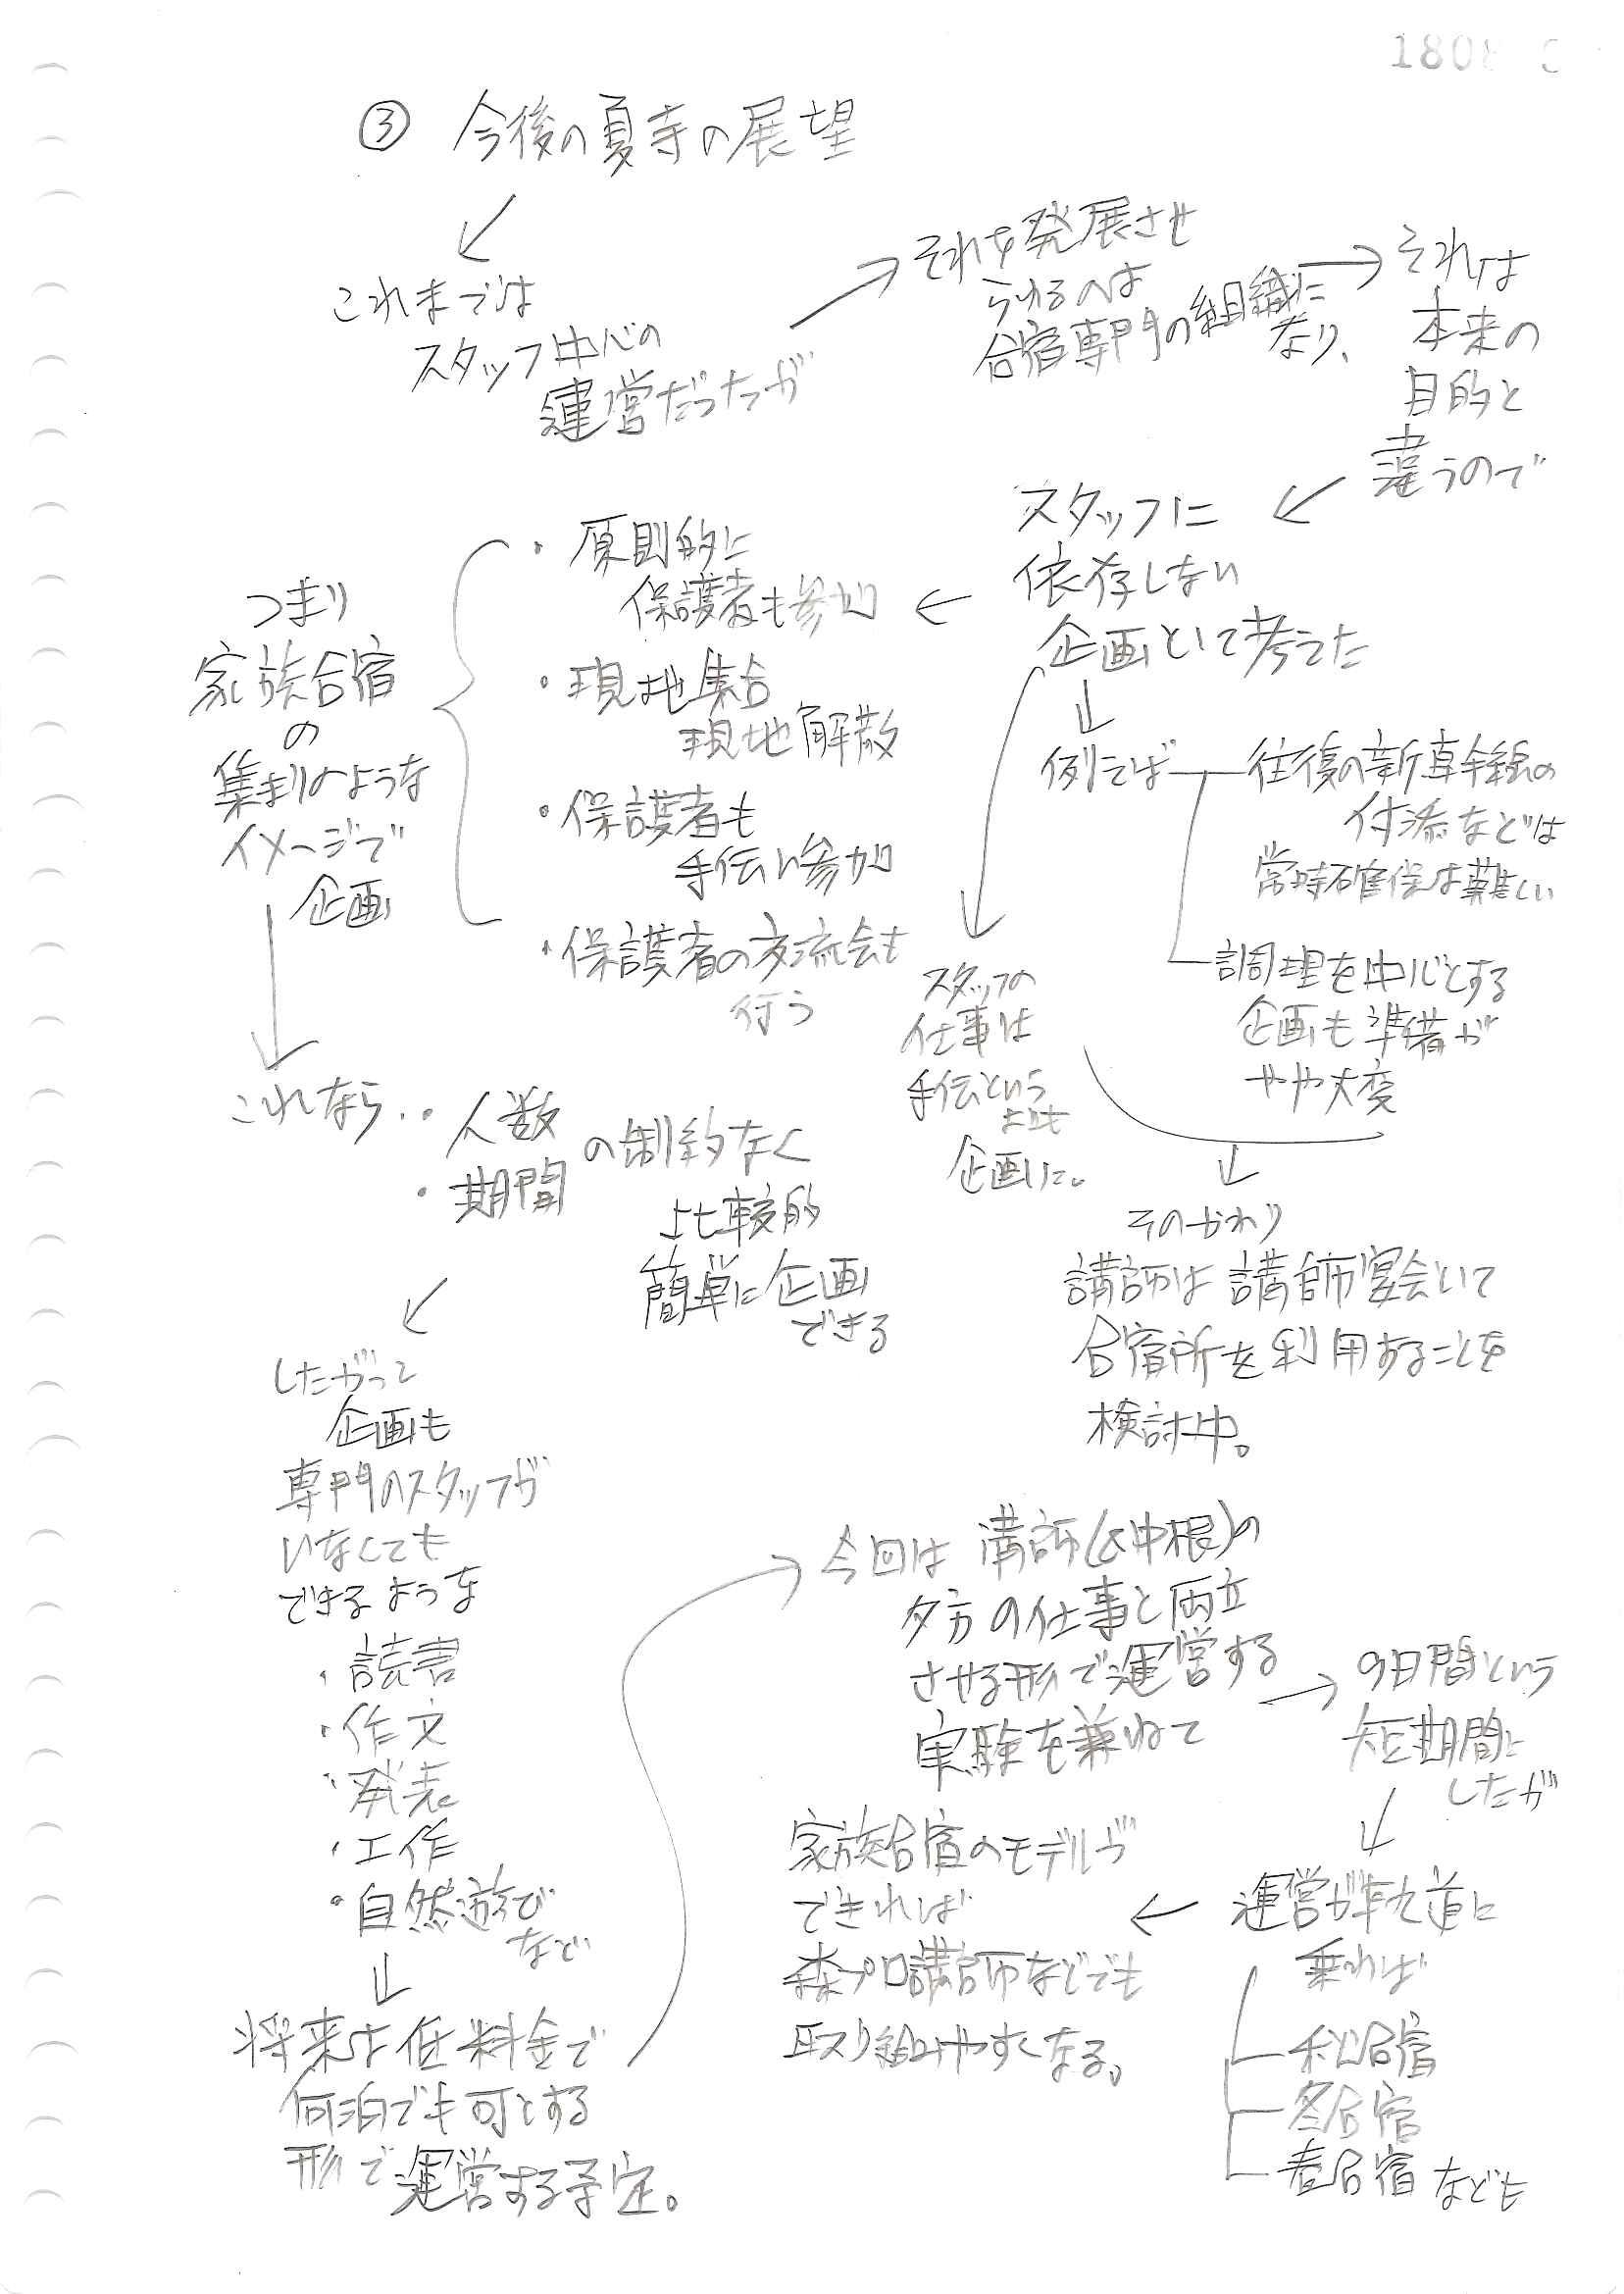 ③ 今後の夏寺の展望
これまでは
スタッフ中心の
運営だったが
それを発展させ
られるのは
合宿専門の組織に
なり、
それは
本来の
目的と
違うので
スタッフに
依存しない
企画として考えた
・原則的に
保護者も参加
・現地集合
現地解散
・保護者も
手伝い参加
・保護者の交流会も
行う
つまり
家族合宿
の
集まりのような
イメージで
企画
例えば
往復の新幹線の
付添などは
常時確保は難しい
調理を中心とする
企画も準備が
やや大変
スタッフの
仕事は
手伝という
よりも
企画に。
そのかわり
講師は講師宴会として
合宿所を利用することを
検討中。
これなら‥
人数
・期間
の制約なく
比較的
簡単に企画
できる
したがって
企画も
専門のスタッフが
いなくても
できるような
・読書
・作文
・発表
・工作
・自然遊び
など
将来は低料金で
何泊でも可とする
形で運営する予定。
今回は講師(中根)の
夕方の仕事と両立
させる形で運営する
実験を兼ねて
9日間という
短期間に
したが
運営が軌道に
乗れば
秋合宿
冬合宿
春合宿なども
家族合宿のモデルが
できれば
森プロ講師などでも
取り組みやすくなる。